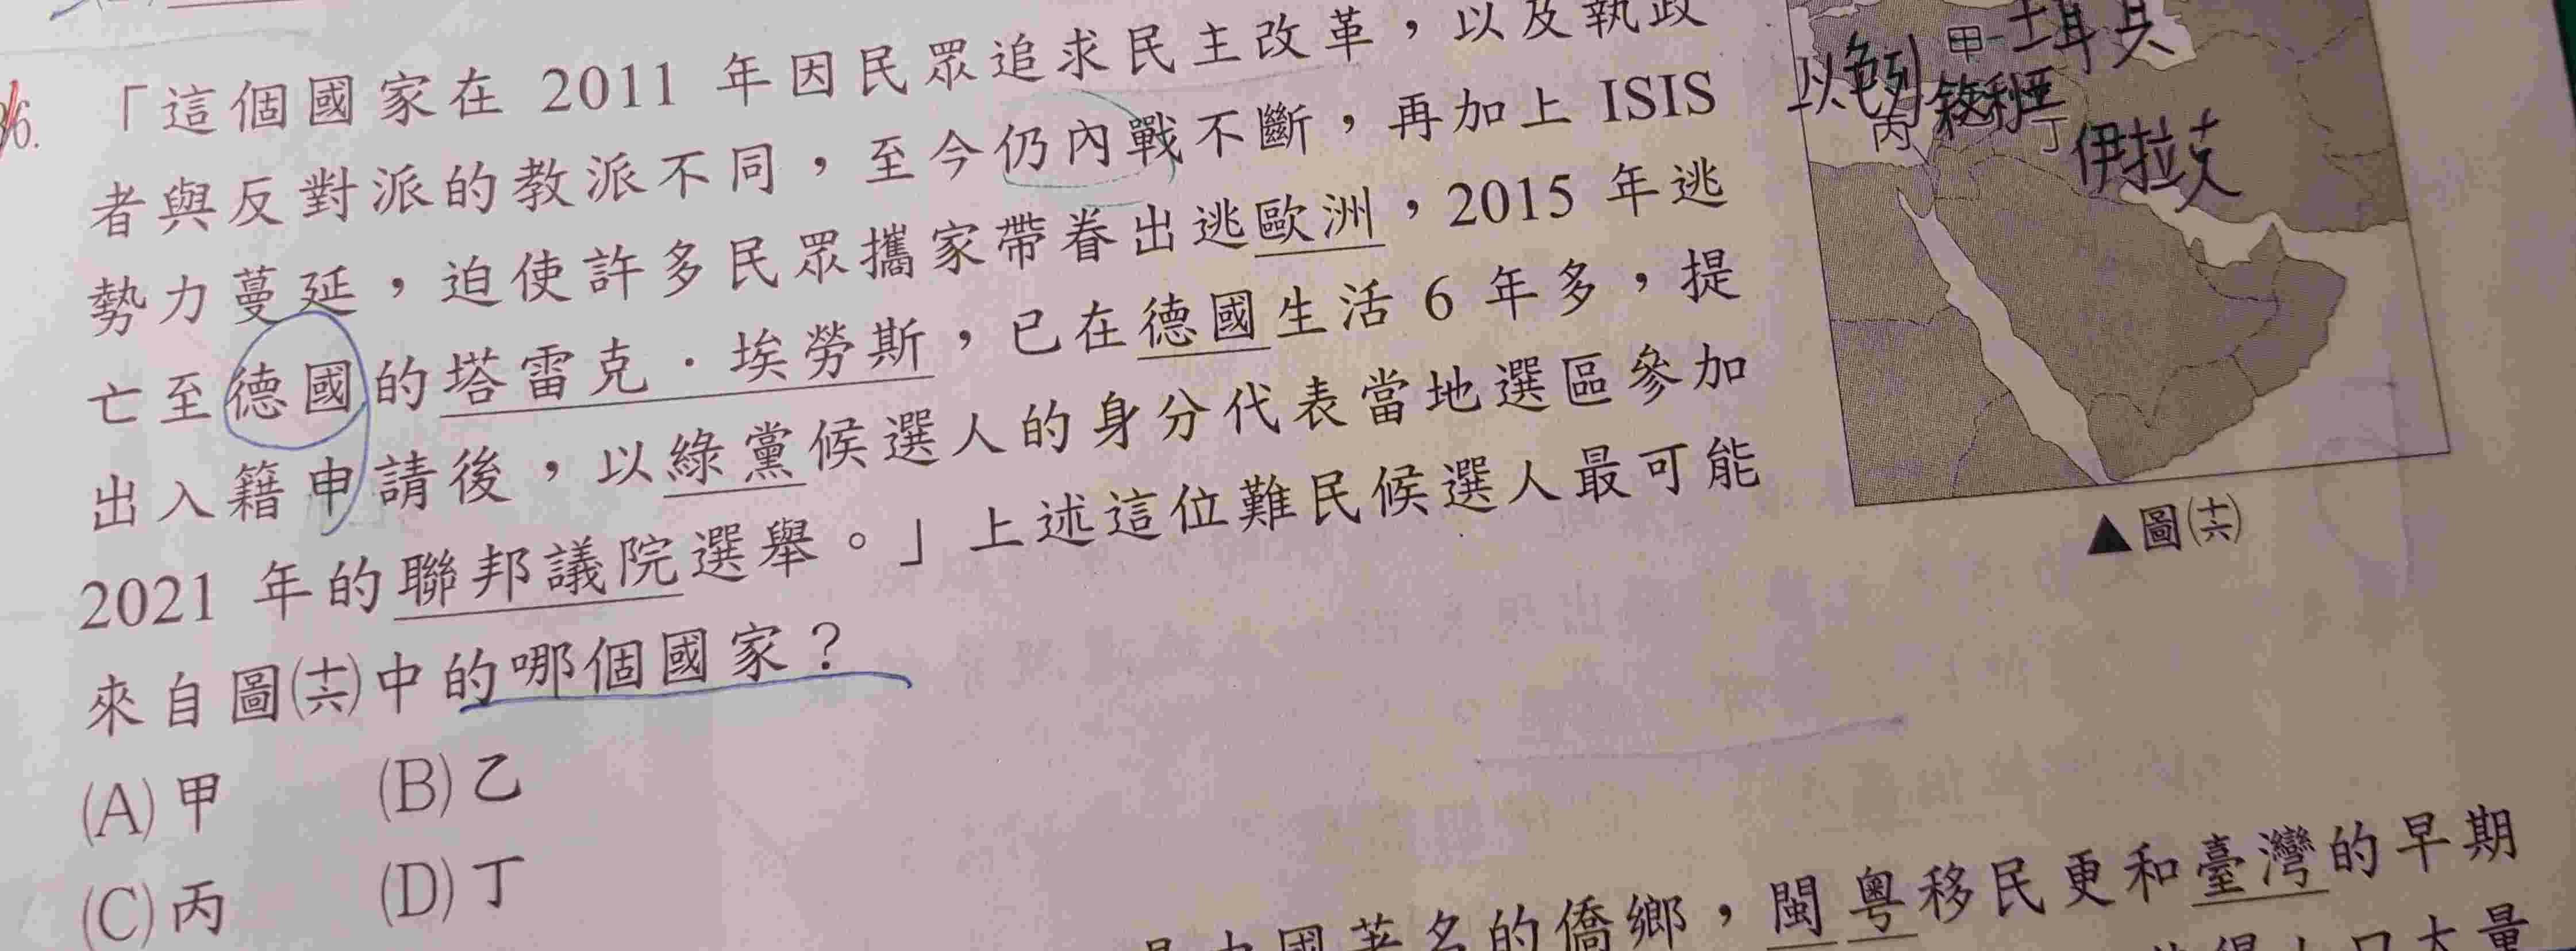 36.
「這個國家在 2011 年因民眾追求民主改革，以及執政
者與反對派的教派不同，至今仍內戰不斷，再加上 ISIS
勢力蔓延，迫使許多民眾攜家帶眷出逃歐洲，2015 年逃
亡至德國的塔雷克．埃勞斯，已在德國生活 6 年多，提
出入籍申請後，以綠黨候選人的身分代表當地選區參加
2021 年的聯邦議院選舉。」上述這位難民候選人最可能
來自圖(十六)中的哪個國家？
(A) 甲 (B) 乙
(C) 丙 (D) 丁
甲 土耳其
以色列 敘利亞
丙 丁 伊拉克
▲圖(十六)
中國著名的僑鄉，閩粵移民更和臺灣的早期
人口大量